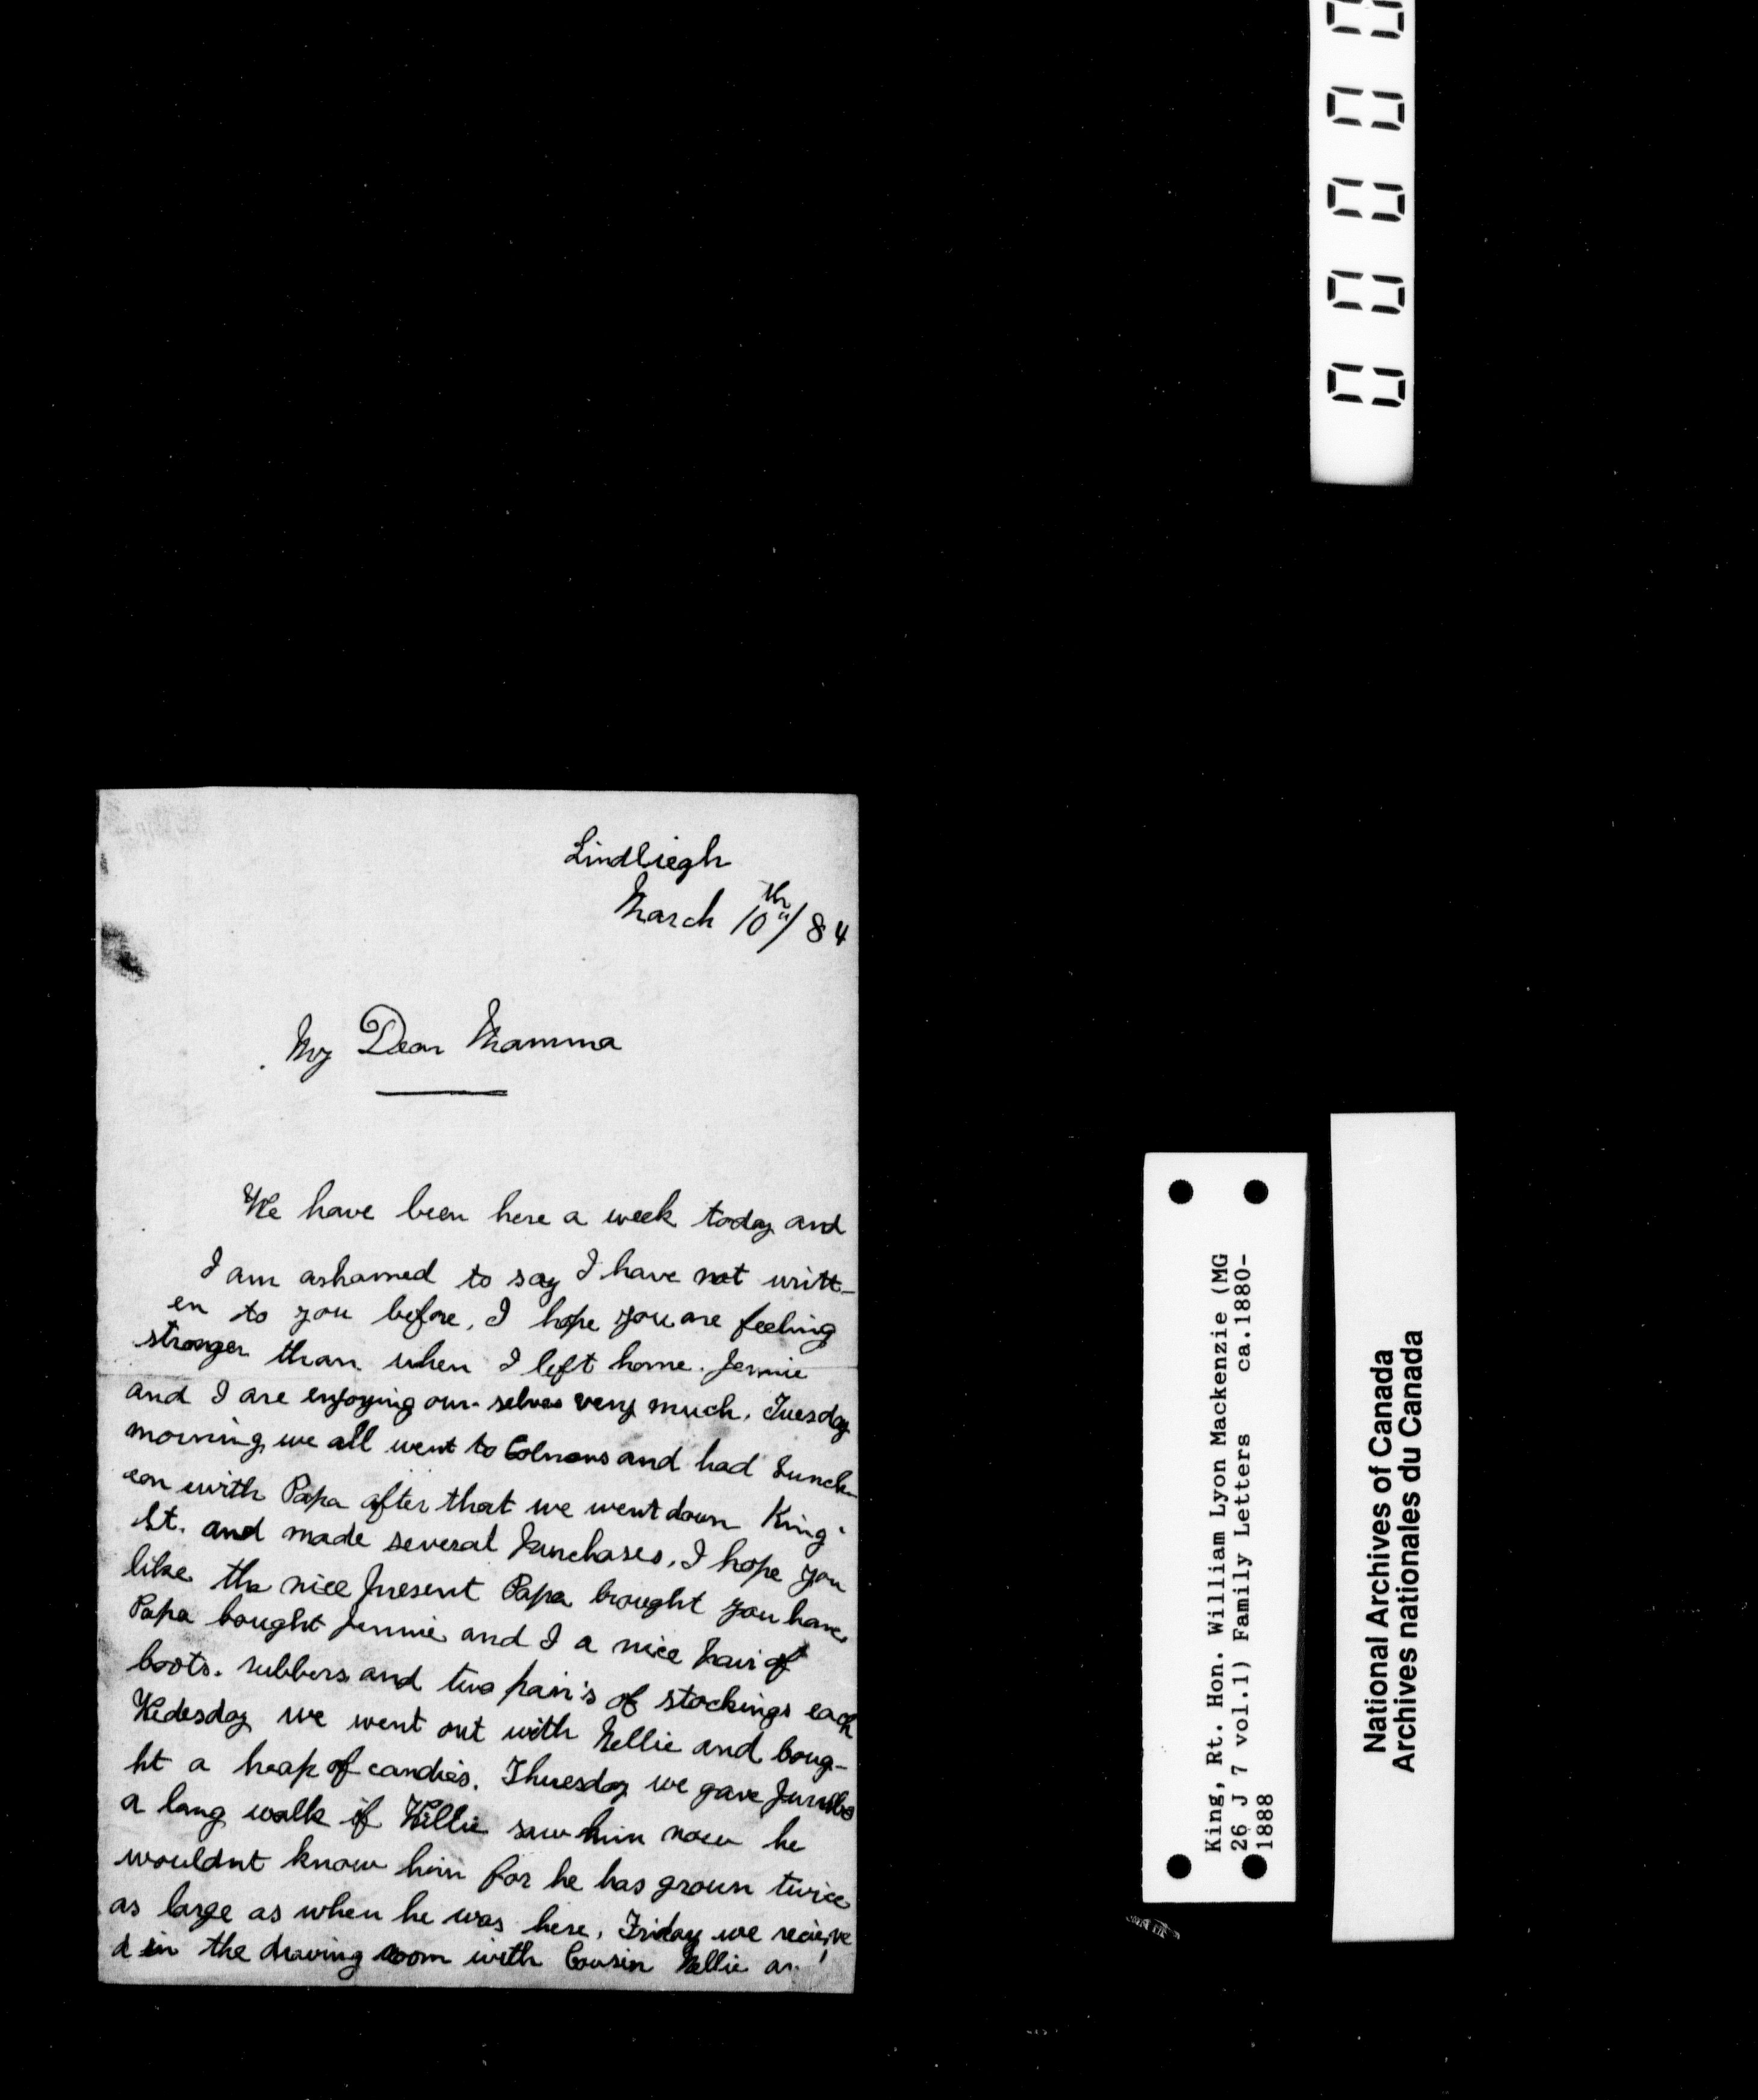 Lindliegh
March 10th/84
My Dear Mamma
We have been here a week today and
I am ashamed to say I have not writt-
en to you before, I hope you are feeling
stronger than when I left home. Jennie
and I are enjoying our-selves very much. Tuesday
morning we all went to and had Lunch-
eon with Papa after that we went down King
St. and made several purchases. I hope you
like the nice present Papa brought you home
Papa bought Jennie and I a nice pair of
boots. rubbers and two pair's of stockings each
Wedesday we went out with Nellie and boug-
ht a heap of candies. Thuesday we gave Jumbo
a long walk if Willie saw him now he
wouldnt know him for he has grown twice
as large as when he was here. Friday we recieve
d in the drawing room with Cousin Nellie
King, Rt. Hon. William Lyon Mackenzie (MG
26 J 7 vol.1) Family Letters ca.1880-
1888
National Archives of Canada
Archives nationales du Canada